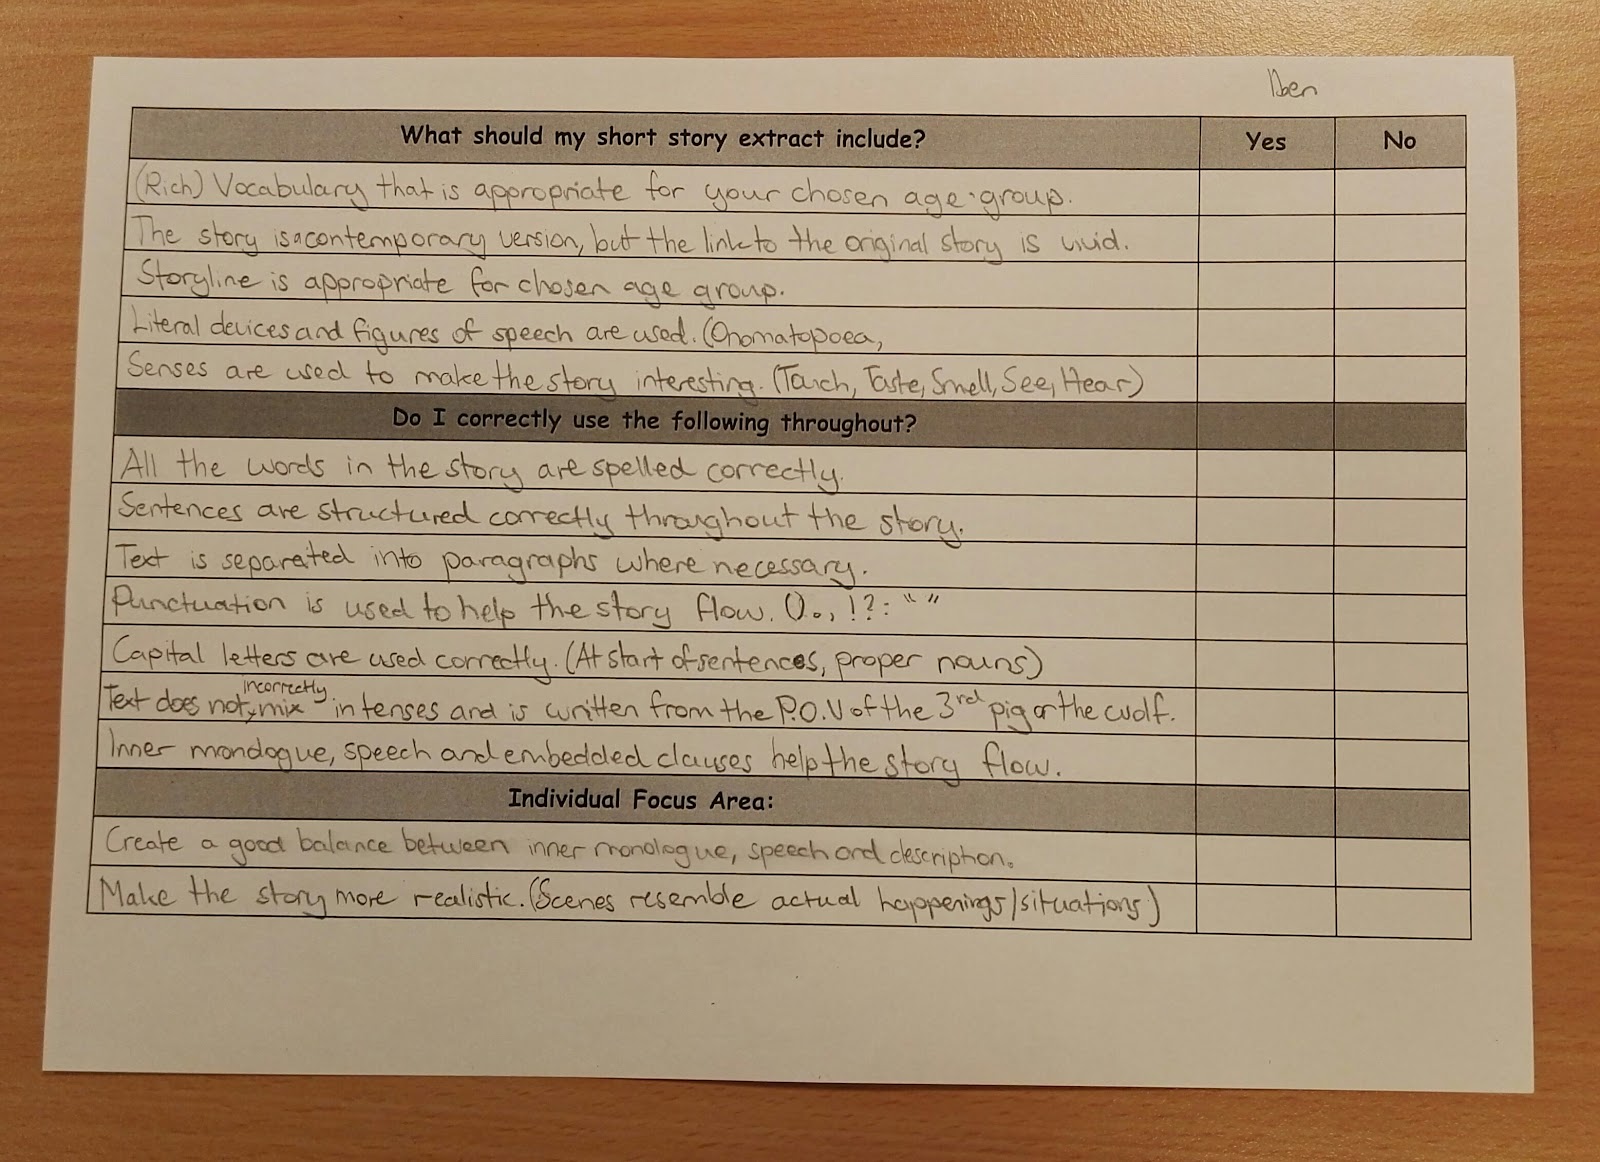 Iben
What should my short story extract include? Yes No
(Rich) Vocabulary that is appropriate for your chosen age-group.
The story is a contemporary version, but the link to the original story is vivid.
Storyline is appropriate for chosen age group.
Literal devices and figures of speech are used. (Onomatopoea,
Senses are used to make the story interesting. (Touch, Taste, Smell, See, Hear)
Do I correctly use the following throughout?
All the words in the story are spelled correctly.
Sentences are structured correctly throughout the story.
Text is separated into paragraphs where necessary.
Punctuation is used to help the story flow. () . , ! ? : “ ”
Capital letters are used correctly. (At start of sentences, proper nouns)
Text does not incorrectly mix in tenses and is written from the P.O.V of the 3rd pig or the wolf.
Inner monologue, speech and embedded clauses help the story flow.
Individual Focus Area:
Create a good balance between inner monologue, speech and description.
Make the story more realistic. (Scenes resemble actual happenings/situations)